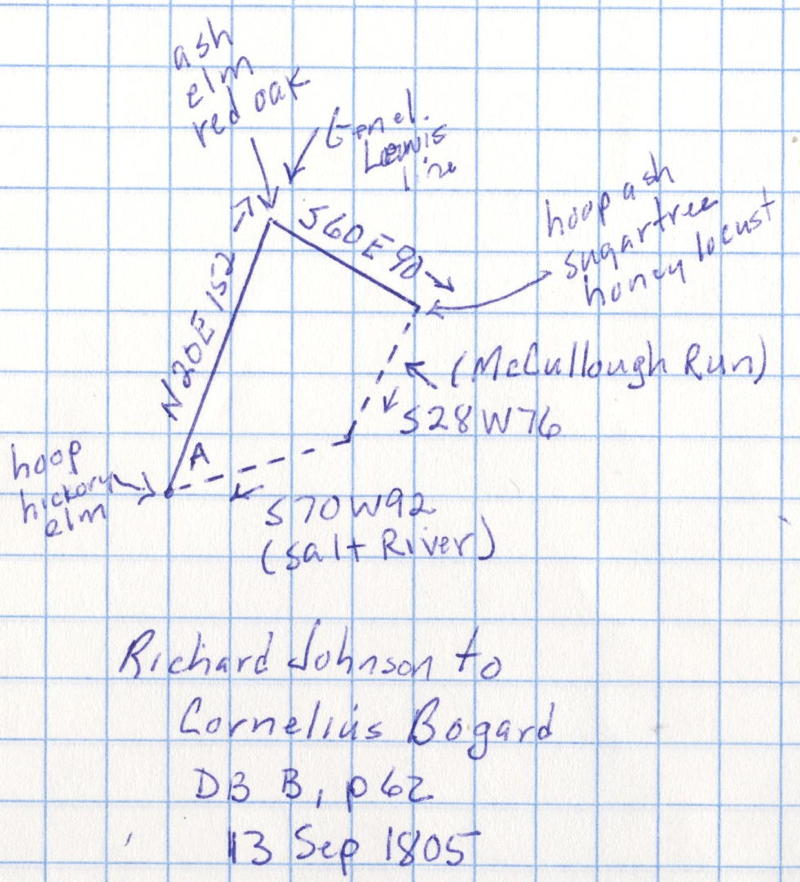 ash
elm
red oak
Genel.
Lewis
line
S60E90
hoop ash
sugartree
honey locust
N20E152
(McCullough Run)
S28W76
A
hoop
hickory
elm
S70W92
(Salt River)
Richard Johnson to
Cornelius Bogard
DB B, p62
13 Sep 1805